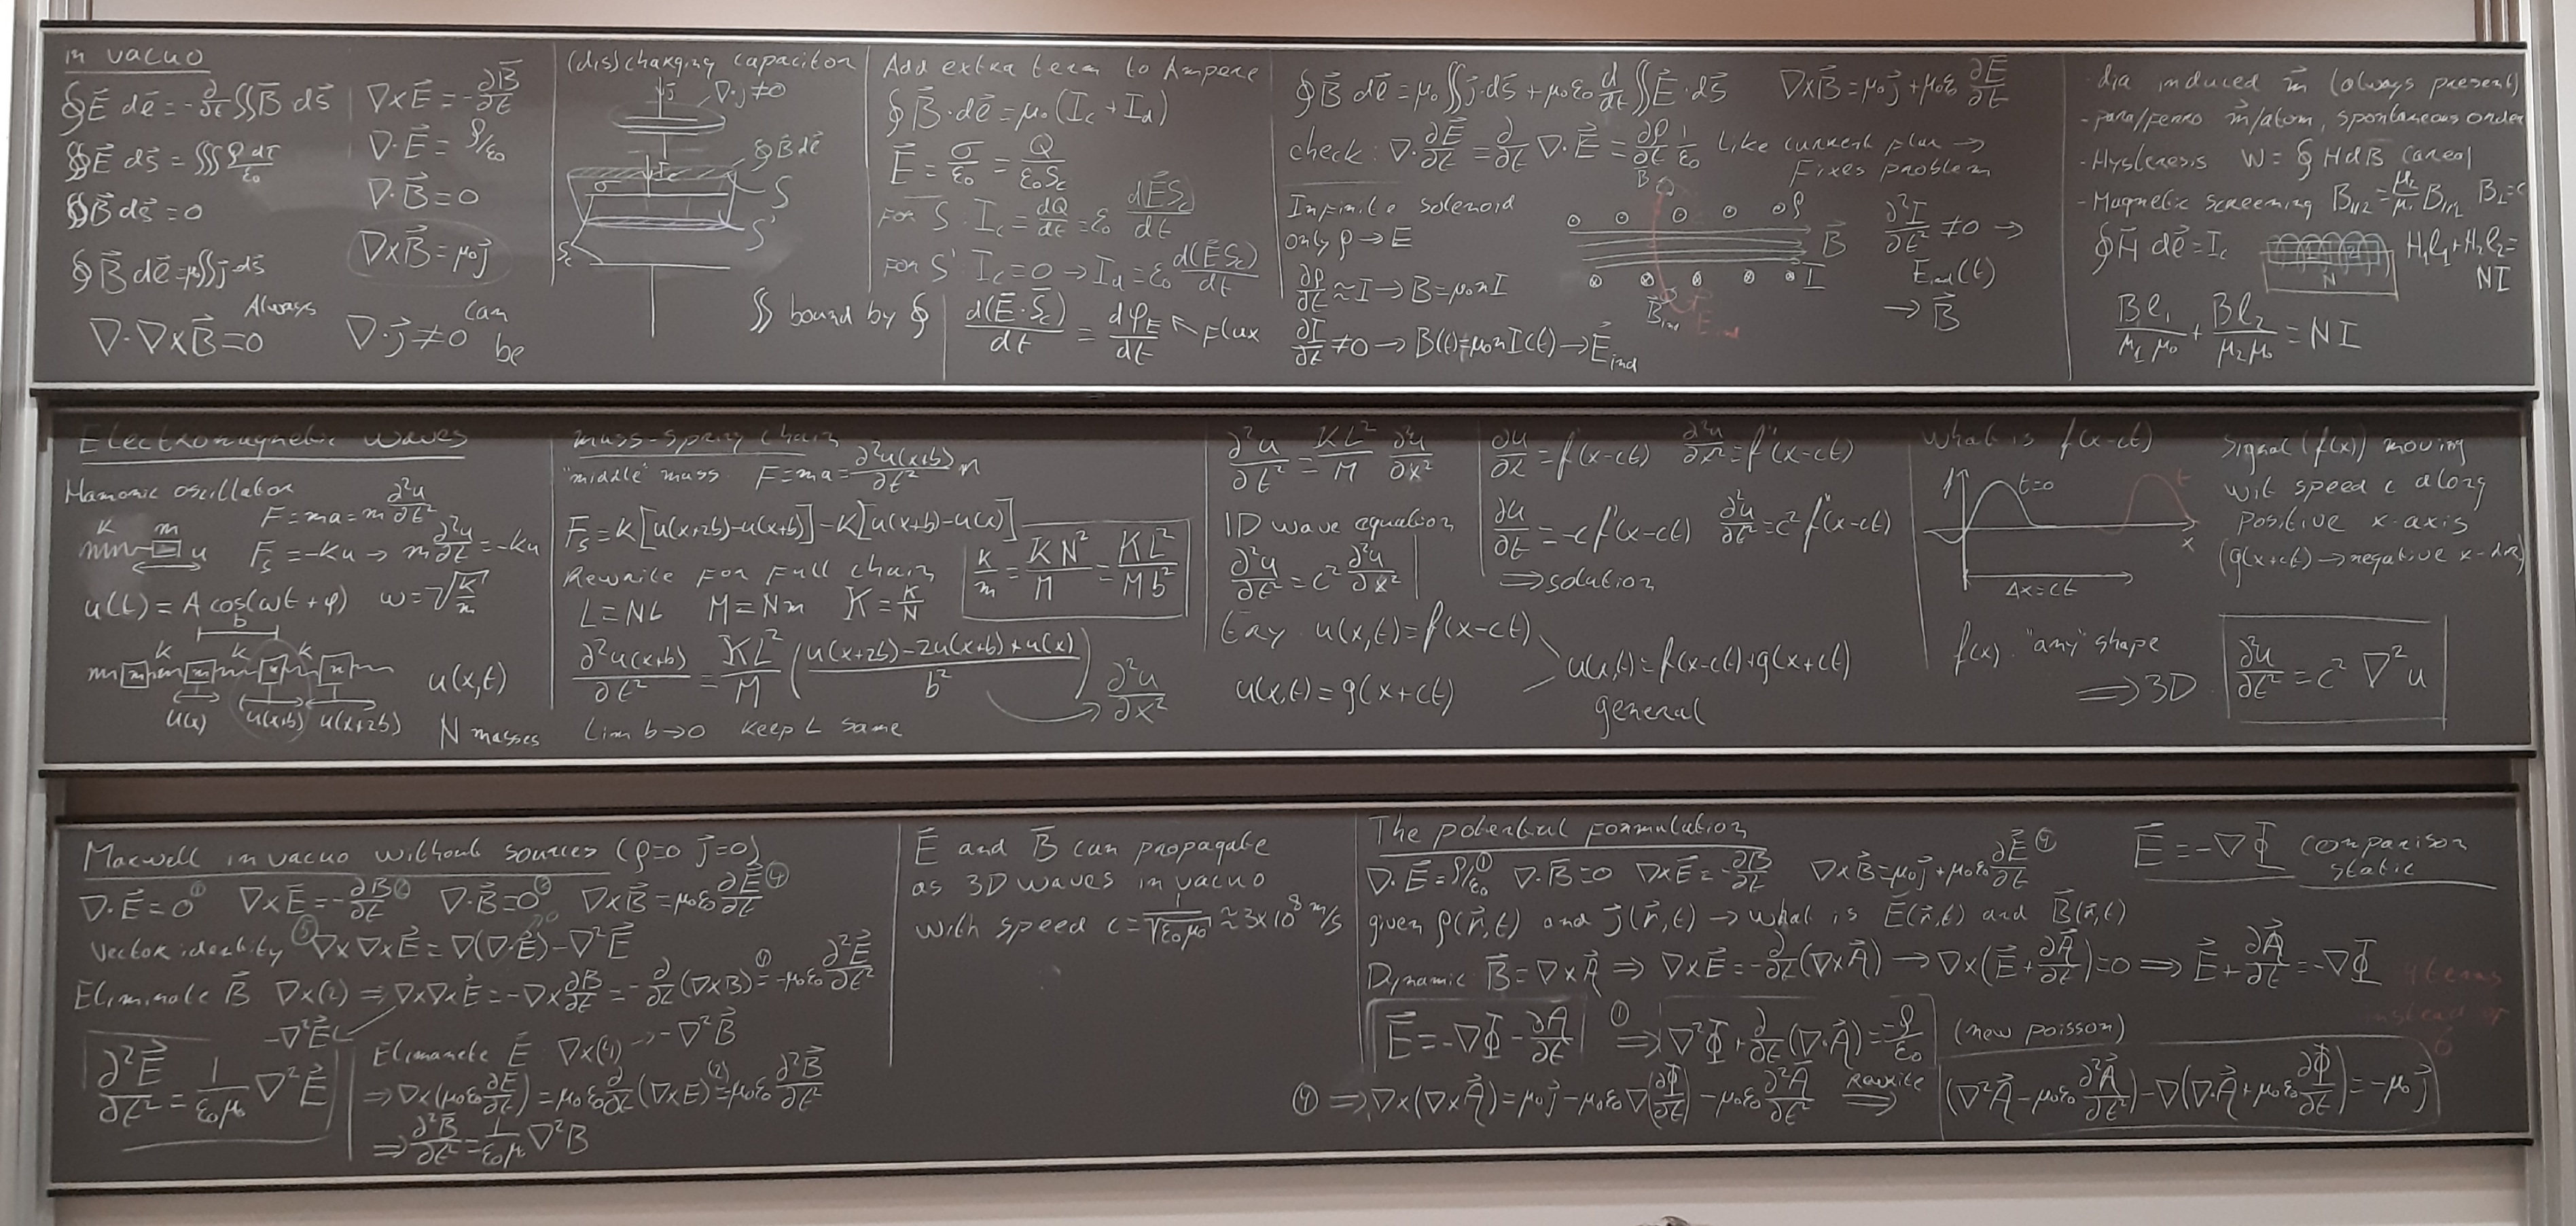 in vacuo
∮E⃗ dℓ⃗ = -∂/∂t ∬B⃗ ds⃗
∯E⃗ ds⃗ = ∭ρ dτ/ε₀
∯B⃗ ds⃗ = 0
∮B⃗ dℓ⃗ = μ₀∬j⃗ ds⃗
∇×E⃗ = -∂B⃗/∂t
∇·E⃗ = ρ/ε₀
∇·B⃗ = 0
∇×B⃗ = μ₀j⃗
Always
∇·∇×B⃗ = 0
can
∇·j⃗ ≠ 0 be
(dis)charging capacitor
j⃗ ∇·j ≠ 0
∮B⃗ dℓ⃗
I_c
σ
S
S'
S_c
∬ bound by ∮
Add extra term to Ampere
∮B⃗·dℓ⃗ = μ₀(I_c + I_d)
E⃗ = σ/ε₀ = Q/(ε₀S_c)
For S : I_c = dQ/dt = ε₀ d E⃗S_c/dt
For S' I_c = 0 → I_d = ε₀ d(E⃗S_c)/dt
d(E⃗·S⃗_c)/dt = dφ_E/dt ↖ Flux
∮B⃗ dℓ⃗ = μ₀∬j⃗·ds⃗ + μ₀ε₀ d/dt ∬E⃗·ds⃗ ∇×B⃗ = μ₀j⃗ + μ₀ε₀ ∂E⃗/∂t
check: ∇·∂E⃗/∂t = ∂/∂t ∇·E⃗ = ∂ρ/∂t 1/ε₀ Like current flux →
Fixes problem
Infinite solenoid
only ρ → E
∂ρ/∂t ≈ I → B = μ₀nI
∂I/∂t ≠ 0 → B(t) = μ₀nI(t) → E⃗ind
B
ρ
B⃗
I
B⃗ind
E⃗ind
∂²I/∂t² ≠ 0 →
Eind(t)
→ B⃗
- dia induced m⃗ (always present)
- para/ferro m⃗/atom, spontaneous order
- Hysteresis W = ∮HdB (area)
- Magnetic screening B∥2 = μ₂/μ₁ B∥1
∮H⃗ dℓ⃗ = I_c
N
H₁ℓ₁+H₂ℓ₂=
NI
Bℓ₁/(μ₁μ₀) + Bℓ₂/(μ₂μ₀) = NI
Electromagnetic waves
Hamonic oscillator
K m
u
F = ma = m ∂²u/∂t²
F_s = -Ku → m ∂²u/∂t² = -Ku
u(t) = A cos(ωt + φ) ω = √(K/m)
b
K K K
m m m m
u(x) u(x+b) u(x+2b)
u(x,t)
N masses
mass-spring chain
"middle" mass F = ma = ∂²u(x+b)/∂t² m
F_s = K[u(x+2b)-u(x+b)] - K[u(x+b)-u(x)]
Rewrite For Full chain
L = Nb M = Nm K = K/N
K/m = KN²/M = KL²/Mb²
∂²u(x+b)/∂t² = KL²/M (u(x+2b)-2u(x+b)+u(x)/b²) → ∂²u/∂x²
Lim b→0 keep L same
∂²u/∂t² = KL²/M ∂²u/∂x²
1D wave equation
∂²u/∂t² = c² ∂²u/∂x²
u(x,t) = f(x-ct)
u(x,t) = g(x+ct)
∂u/∂x = f'(x-ct) ∂²u/∂x² = f''(x-ct)
∂u/∂t = -c f'(x-ct) ∂²u/∂t² = c² f''(x-ct)
⟹ solution
u(x,t) = f(x-ct)+g(x+ct)
general
What is f(x-ct)
t=0
t
x
Δx=ct
Signal (f(x)) moving
wit speed c along
positive x-axis
(g(x+ct) → negative x-dir)
f(x) "any" shape
⟹ 3D
∂²u/∂t² = c² ∇²u
Maxwell in vacuo without sources (ρ=0 j⃗=0)
∇·E⃗ = 0 ① ∇×E⃗ = -∂B⃗/∂t ② ∇·B⃗ = 0 ③ ∇×B⃗ = μ₀ε₀ ∂E⃗/∂t ④
Vector identity ⑤ ∇×∇×E⃗ = ∇(∇·E⃗) - ∇²E⃗
0
Eliminate B⃗ ∇×(2) ⟹ ∇×∇×E⃗ = -∇×∂B/∂t = -∂/∂t(∇×B) = -μ₀ε₀ ∂²E⃗/∂t²
-∇²E⃗
∂²E⃗/∂t² = 1/(ε₀μ₀) ∇²E⃗
Elimanete E⃗ ∇×(4) → -∇²B⃗
⟹ ∇×(μ₀ε₀ ∂E/∂t) = μ₀ε₀ ∂/∂t(∇×E) (2)= -μ₀ε₀ ∂²B⃗/∂t²
⟹ ∂²B⃗/∂t² = 1/(ε₀μ₀) ∇²B
E⃗ and B⃗ can propagate
as 3D waves in vacuo
with speed c = 1/√(ε₀μ₀) ≈ 3×10⁸ m/s
The potential formulation
∇·E⃗ = ρ/ε₀ ① ∇·B⃗ = 0 ∇×E⃗ = -∂B/∂t ∇×B⃗ = μ₀j⃗ + μ₀ε₀ ∂E⃗/∂t ④
E⃗ = -∇Φ comparison
static
given ρ(r⃗,t) and j⃗(r⃗,t) → what is E⃗(r⃗,t) and B⃗(r⃗,t)
Dynamic B⃗ = ∇×A⃗ ⟹ ∇×E⃗ = -∂/∂t(∇×A⃗) → ∇×(E⃗ + ∂A⃗/∂t) = 0 ⟹ E⃗ + ∂A⃗/∂t = -∇Φ
4 terms
instead of
6
E⃗ = -∇Φ - ∂A⃗/∂t ①⟹ ∇²Φ + ∂/∂t(∇·A⃗) = -ρ/ε₀ (new poisson)
④ ⟹ ∇×(∇×A⃗) = μ₀j⃗ - μ₀ε₀∇(∂Φ/∂t) - μ₀ε₀ ∂²A⃗/∂t² Rewrite ⟹ (∇²A⃗ - μ₀ε₀ ∂²A⃗/∂t²) - ∇(∇·A⃗ + μ₀ε₀ ∂Φ/∂t) = -μ₀j⃗